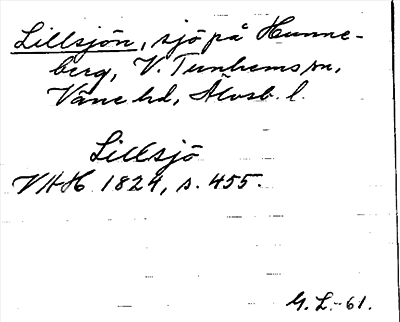 Lillsjön, sjö på Hunne-
berg, V. Tunhems sn,
Väne hd, Älvsb. l.
Lillsjö
VAH 1824, s. 455.
G. L. -61.